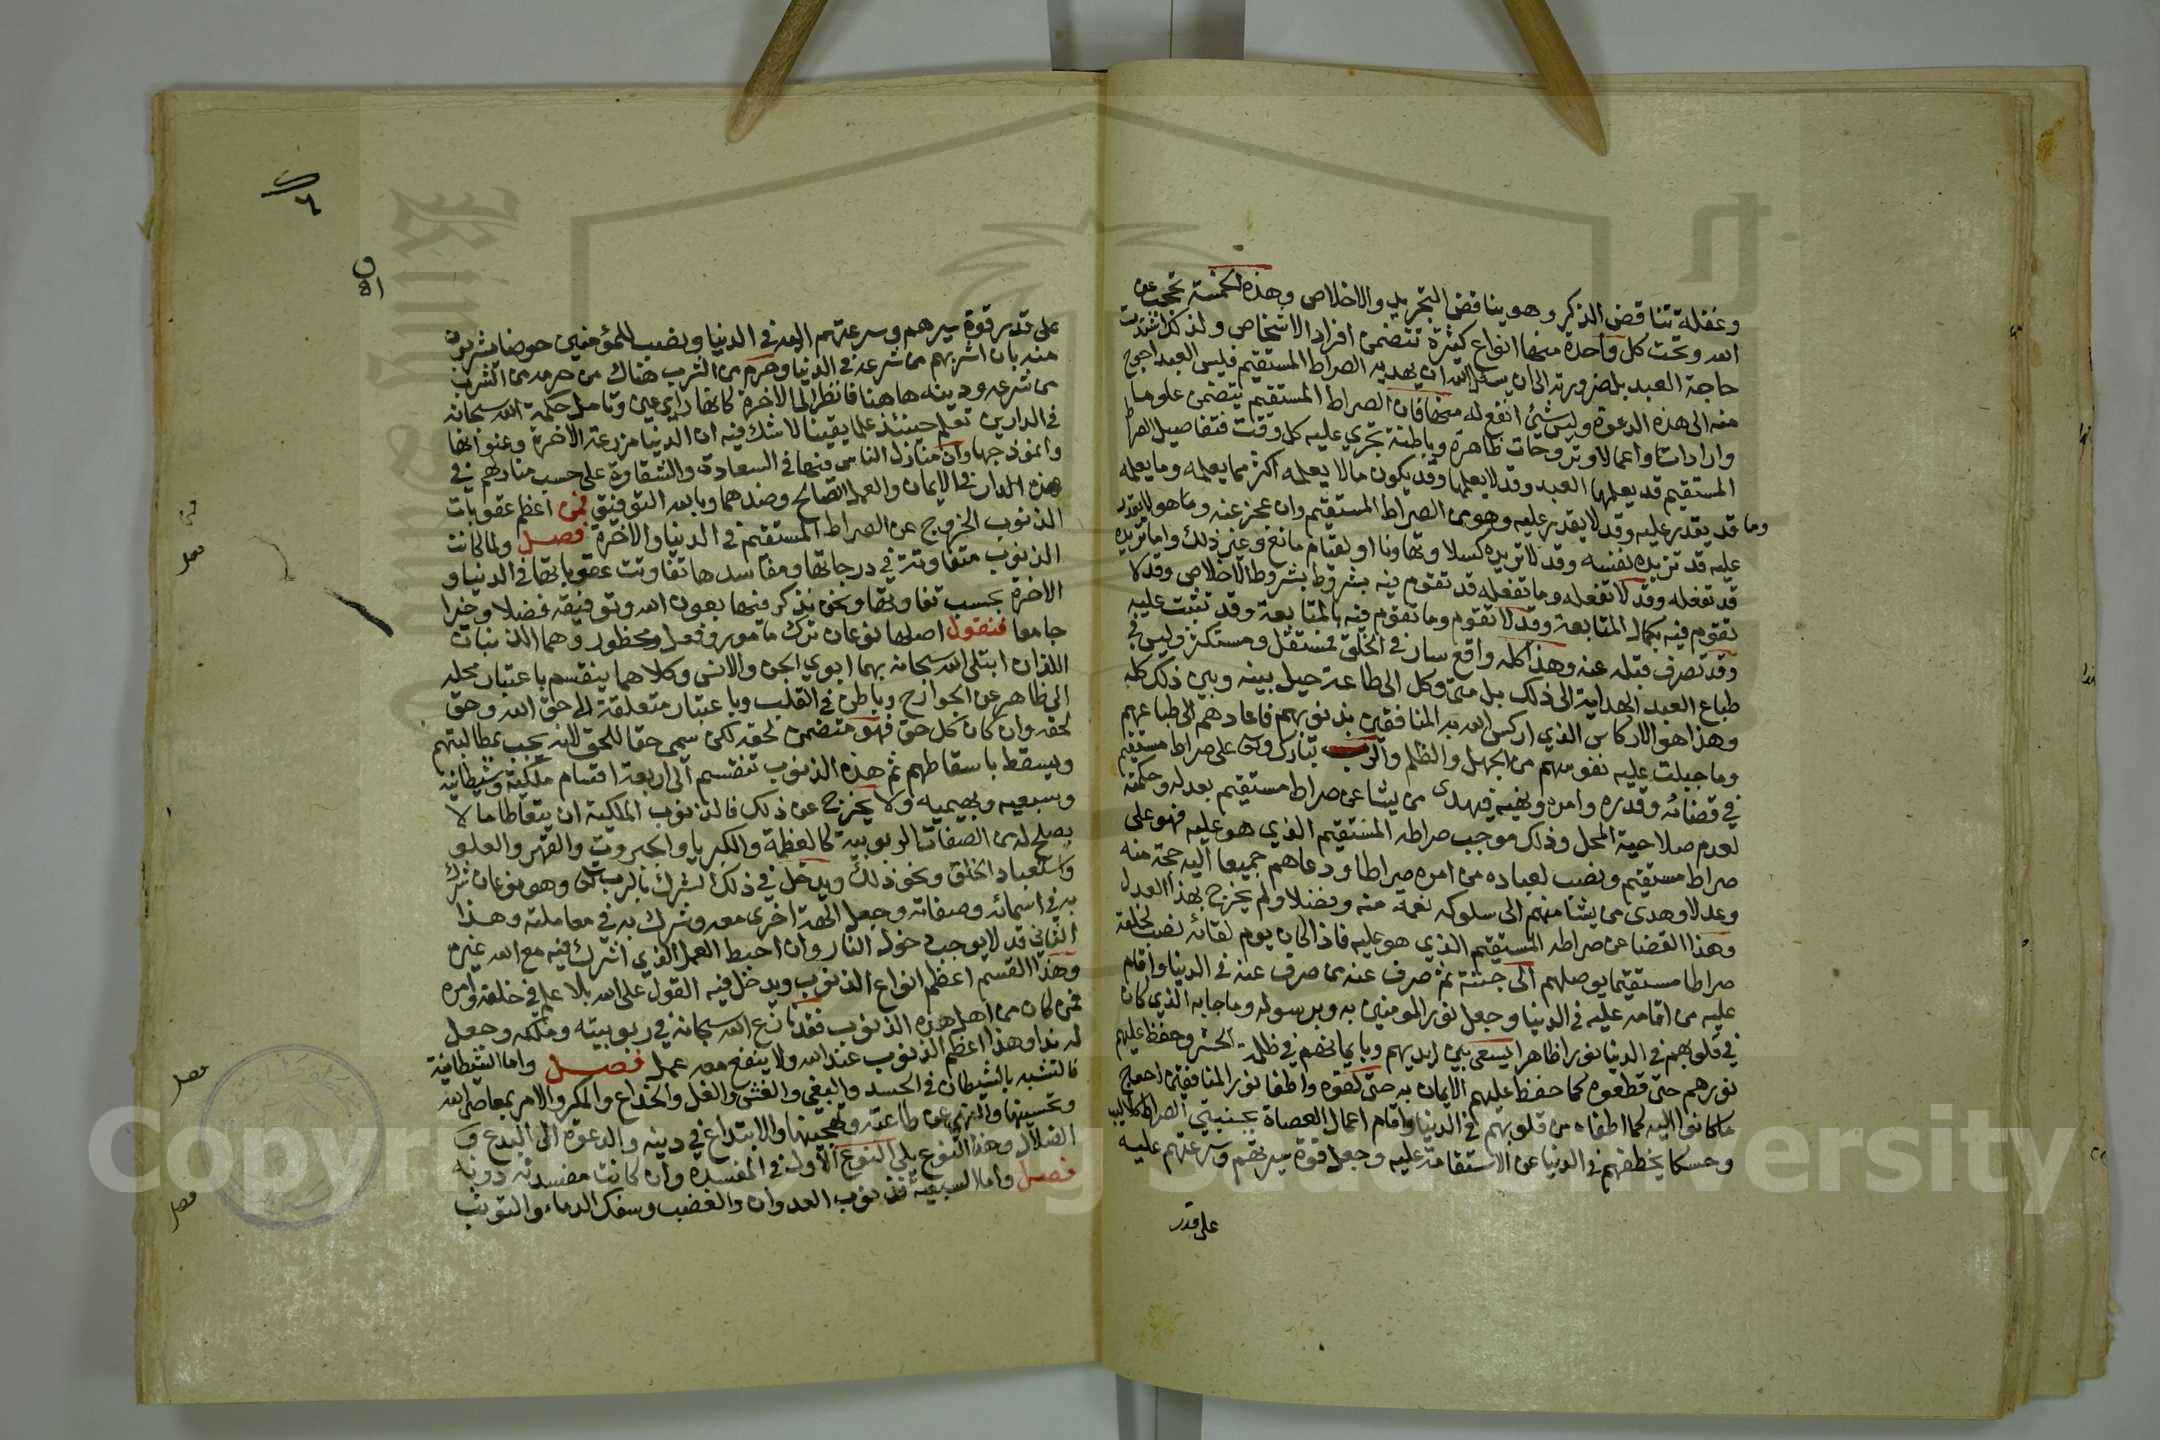 وغفلة تناقض الذكر وهو يناقض التجريد والاخلاص وهذه الخمسة تحجب عن
الله وتحت كل واحدة منها انواع كثيرة تتضمن افراد الاشخاص ولذلك اشتدت
حاجة العبد بل ضرورته الى ان يسئل الله ان يهديه الصراط المستقيم فليس العبد احوج
منه الى هذه الدعوة وليس شيئ انفع له منها فان الصراط المستقيم يتضمن علوما
وارادات واعمالا وتروحات ظاهرة وباطنة تجري عليه كل وقت فتفاصيل الصراط
المستقيم قد يعلمها العبد وقد لا يعلمها وقد يكون ما لا يعلمه اكثر مما يعلمه وما يعلمه
وما قد يقدر عليه وقد لا يقدر عليه وهو من الصراط المستقيم وان عجز عنه وما هو لا يقدر
عليه قد تريده نفسه وقد لا تريده كسلا وتهاونا او لقيام مانع وغير ذلك واما تريده
قد تفعله وقد لا تفعله وما تفعله قد تقوم فيه بشروط الاخلاص وقد لا
تقوم فيه بكمال المتابعة وقد لا تقوم وما تقوم فيه بالمتابعة وقد تثبت عليه
وقد تصرف قبله عنه وهذا كله واقع سار في الخلق فمستقل ومستكثر وليس في
طباع العبد الهداية الى ذلك بل متى وكل الى طاعة حيل بينه وبين ذلك كله
وهذا هو الاركاس الذي اركس الله به المنافقين بذنوبهم فاعادهم الى طباعهم
وما جبلت عليه نفوسهم من الجهل والظلم والرب تبارك وتعالى على صراط مستقيم
في قضائه وقدره وامره ونهيه فيهدي من يشا عن صراط مستقيم بعدله وحكمته
لعدم صلاحية المحل وذلك موجب صراطه المستقيم الذي هو عليه فهو على
صراط مستقيم ونصب لعباده من امره صراطا ودعاهم جميعا اليه حجة منه
وعدلا وهدى من يشا منهم الى سلوكه نعمة منه وفضلا ولم يخرج بهذا العدل
وهذا القضا عن صراطه المستقيم الذي هو عليه فاذا كان يوم لقائه نصب لخلقه
صراطا مستقيما يوصلهم الى جنته ثم صرف عنه من صرف عنه في الدنيا واقام
عليه من اقامه عليه في الدنيا وجعل نور المومنين به وبرسوله وما جا به الذي كان
في قلوبهم في الدنيا نورا ظاهرا يسعى بين ايديهم وبايمانهم في ظلمة الحشر وحفظ عليهم
نورهم حتى قطعوه كما حفظ عليهم الايمان به حتى لقوه واطفا نور المنافقين احوج
ما كانوا اليه كما اطفاه من قلوبهم في الدنيا واقام اعمال العصاة بجنبتي الصراط كلاليب
وحسكا يخطفهم في الدنيا عن الاستقامة عليه وجعل قوة سيرهم وسرعتهم عليه
على قدر
على قدر قوة سيرهم وسرعتهم اليه في الدنيا ونصب للمؤمنين حوضا يشربون
منه بان اشربهم من شرعه في الدنيا وحرم من الشرب هناك من حرمه من الشرب
من شرعه ودينه هاهنا فانظر الى الاخرة كانها راي عين وتامل حكمة الله سبحانه
في الدارين تعلم حينئذ علما يقينا لا شك فيه ان الدنيا مزرعة الاخرة وعنوانها
وانموذجها وان منازل الناس فيها في السعادة والشقاوة على حسب منازلهم في
هذه الدار في الايمان والعمل الصالح وضدهما وبالله التوفيق فمن اعظم عقوبات
الذنوب الخروج عن الصراط المستقيم في الدنيا والاخرة فصل ولما كانت
الذنوب متفاوتة في درجاتها ومفاسدها تفاوتت عقوباتها في الدنيا و
الاخرة بحسب تفاوتها ونحن نذكر فيها بعون الله وتوفيقه فضلا وخيرا
جامعا فنقول اصلها نوعان ترك مأمور وفعل محظور وهما الذنبان
اللذان ابتلى الله سبحانه بهما ابوي الجن والانس وكلاهما ينقسم باعتبار محله
الى ظاهر عن الجوارح وباطن في القلب وباعتبار متعلقة الى حق الله وحق
لخقه وان كان كل حق فهو متضمن لحقه لكن سمي حقا للحق لانه يجب بمطالبتهم
ويسقط باسقاطهم ثم هذه الذنوب تنقسم الى اربعة اقسام ملكية وشيطانية
وسبعيه وبهيميه ولا يخرج عن ذلك فالذنوب الملكية ان يتعاطا ما لا
يصلح له من الصفات الربوبية كالعظمة والكبريا والجبروت والقهر والعلو
واستعباد الخلق ونحو ذلك ويدخل في ذلك الشرك بالرب تعالى وهو نوعان شرك
به في اسمائه وصفاته وجعل الهة اخرى معه وشرك به في معاملته وهذا
الثاني قد لا يوجب دخول النار وان احبط العمل الذي اشرك فيه مع الله غيره
وهذا القسم اعظم انواع الذنوب ويدخل فيه القول على الله بلا علم في خلقه وامره
فمن كان من اهل هذه الذنوب فقد نازع الله سبحانه في ربوبيته وملكه وجعل
له ندا وهذا اعظم الذنوب عند الله ولا ينفع معه عمل فصل واما الشيطانية
فالتشبه بالشيطان في الحسد والبغي والغش والغل والخداع والمكر والامر بمعاصي الله
وتحسينها والنهي عن طاعته وتهجينها والابتداع في دينه والدعوة الى البدع و
الضلال وهذا النوع يلي النوع الاول في المفسده وان كانت مفسدته دونه
فصل واما السبعية فذنوب العدوان والغضب وسفك الدماء والتوثب
فصل
فصل
Copyright © King Saud University